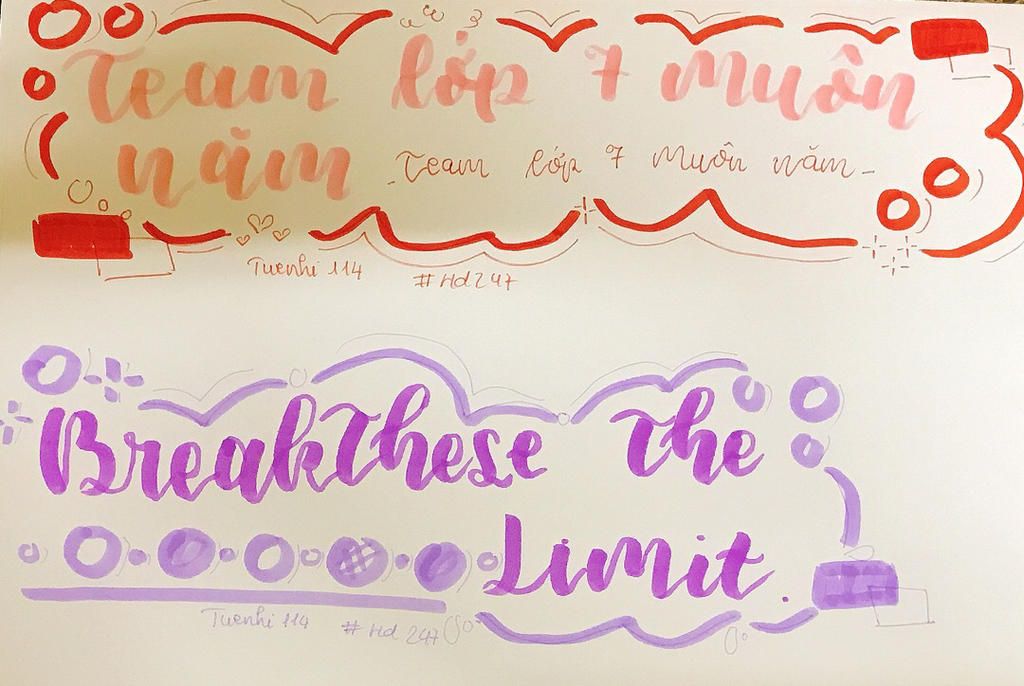 Team lớp 7 Muôn
năm
Team lớp 7 Muôn năm
Tuenhi 114 #Hd247
BreakThese The
Limit.
Tuenhi 114 #Hd 247